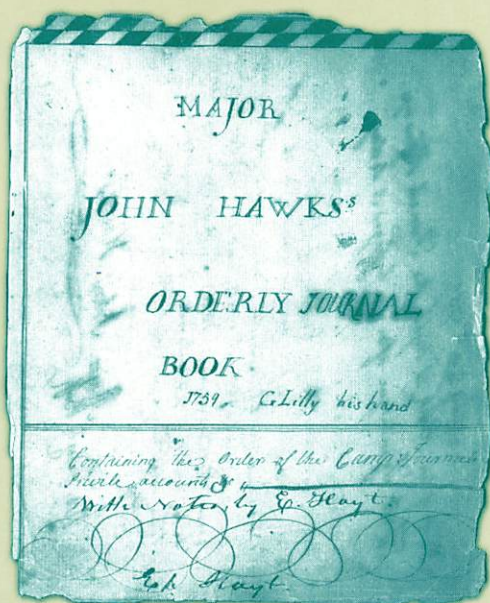 MAJOR
JOHN HAWKS's
ORDERLY JOURNAL
BOOK.
1759. C. Lilly his hand
Containing the Order of the Camp Journal
Private accounts &
With Notes by E. Hoyt.
Eph Hoyt